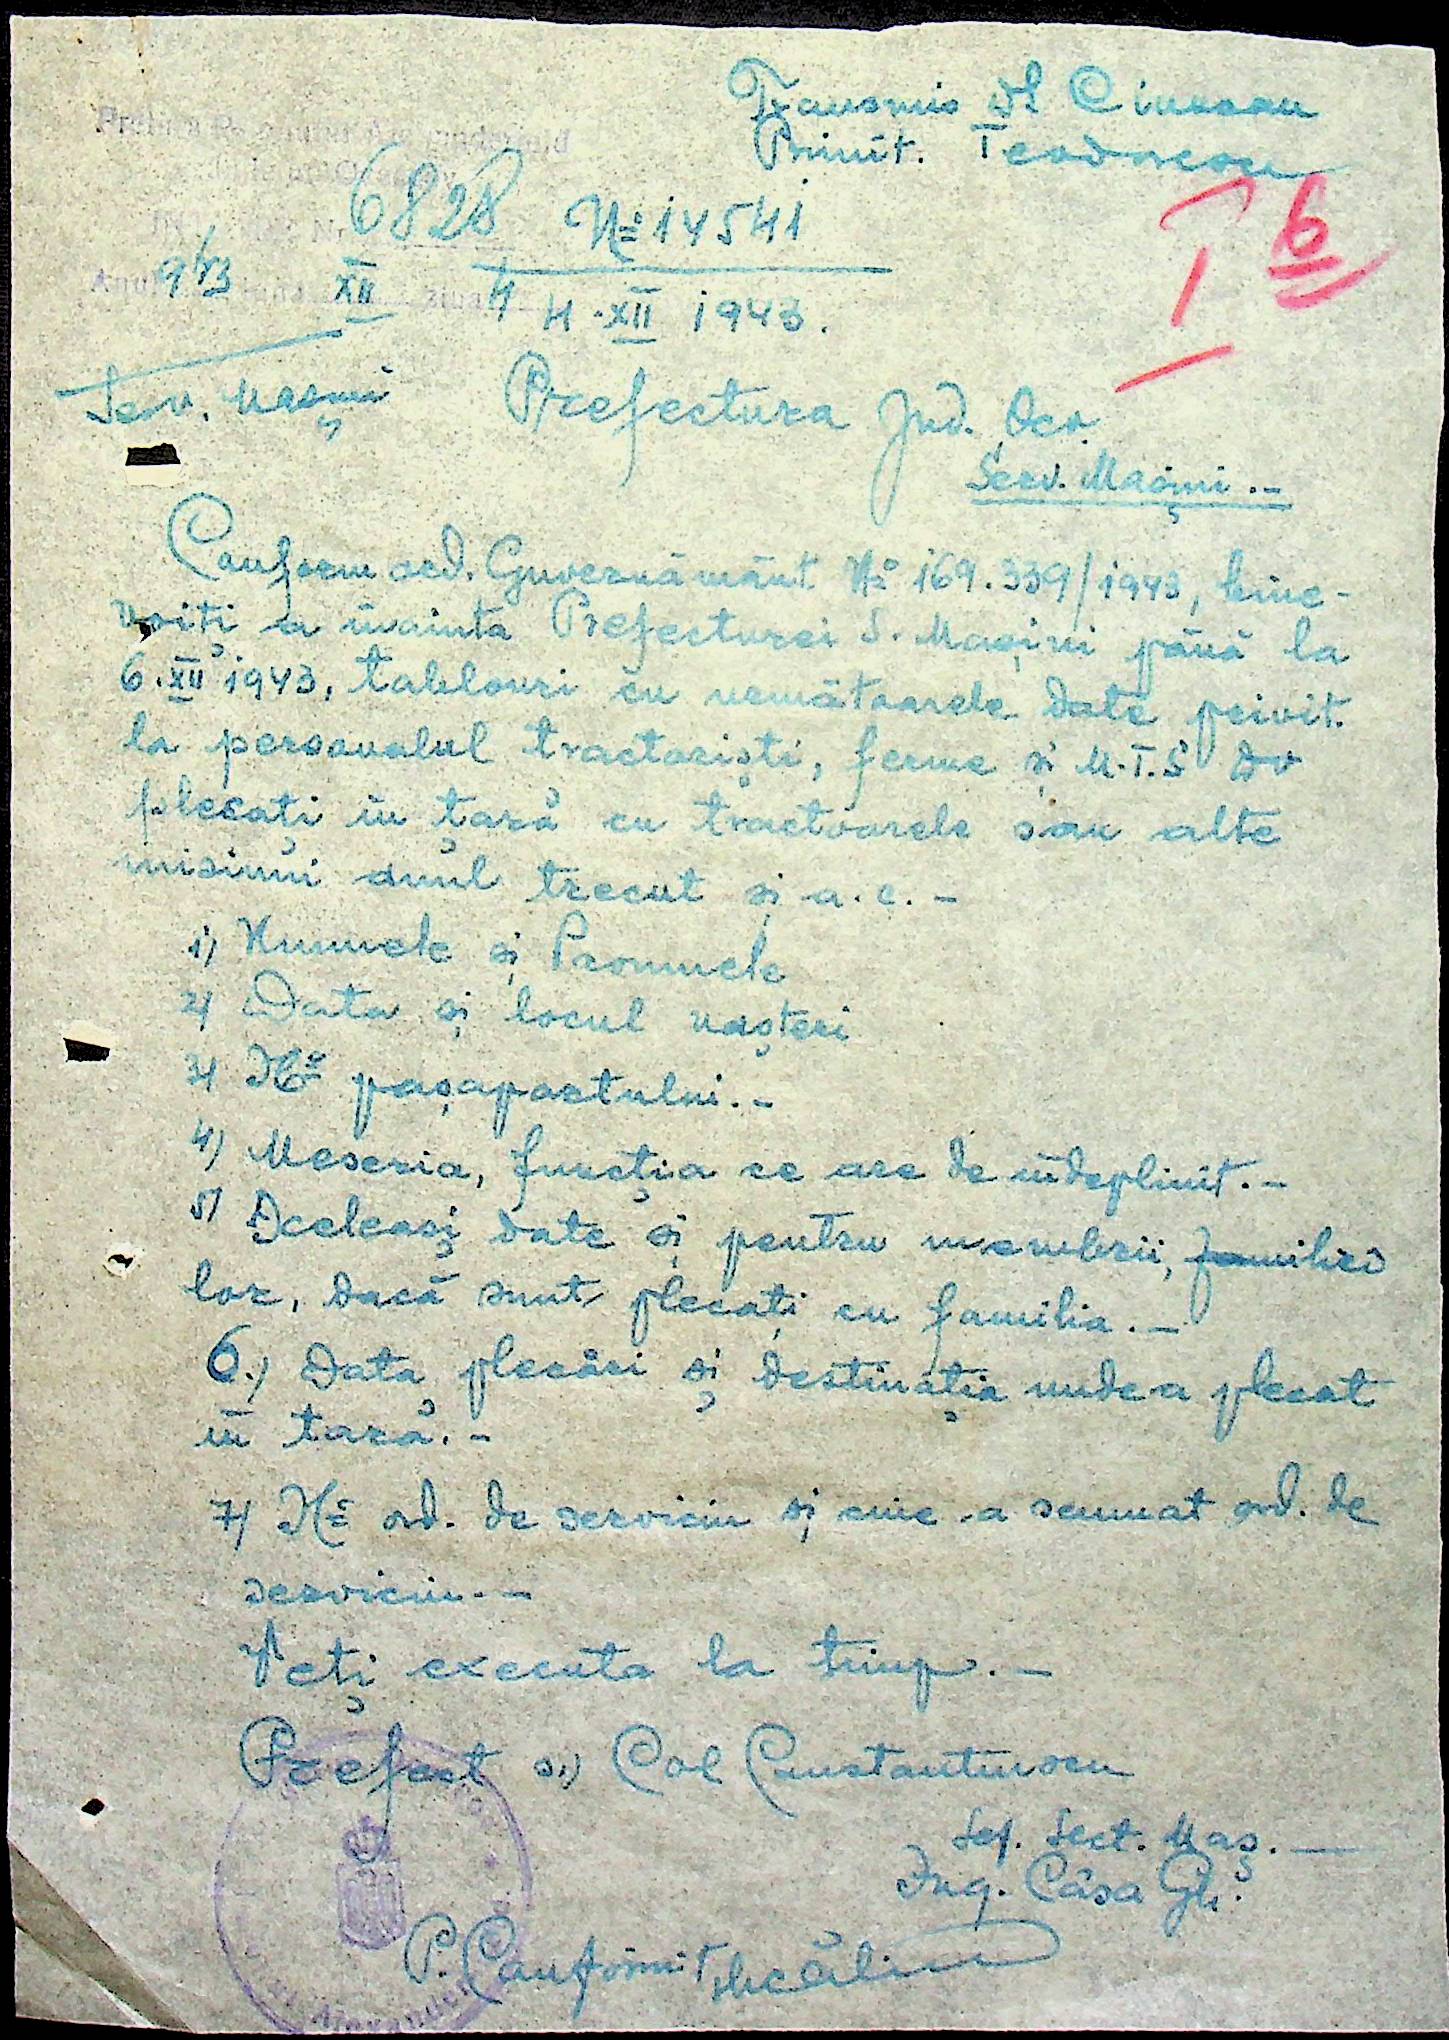 Transmis Dl Ciuncan
Primit. Teodorescu
6828
Nº 14541
943 XII 4
4.XII 1943.
T 6
Serv. Mașini
Prefectura Jud. Ocv.
Serv. Mașini.-
Conform ord. Guvernământ Nº 169.339/1943, bine-
voiți a înainta Prefecturei S. Mașini până la
6.XII 1943, tablouri cu următoarele date privit.
la personalul tractoriști, ferme și M.T.S dv
plecați în țară cu tractoarele sau alte
misiuni anul trecut și a.c.-
1) Numele și Pronumele
2) Data și locul nașteri
3) Nº pașaportului.-
4) Meseria, funcția ce are de îndeplinit.-
5) Aceleași date și pentru membrii, familiei
lor, dacă sunt plecați cu familia.-
6.) Data plecări și destinația unde a plecat
în țară.-
7) Nº ord. de serviciu și cine a semnat ord. de
serviciu.-
Veți executa la timp.-
Prefect ss) Col Constantinescu
Șef. Sect. Maș.-
Ing. Câsa Gh.
P. Conformit